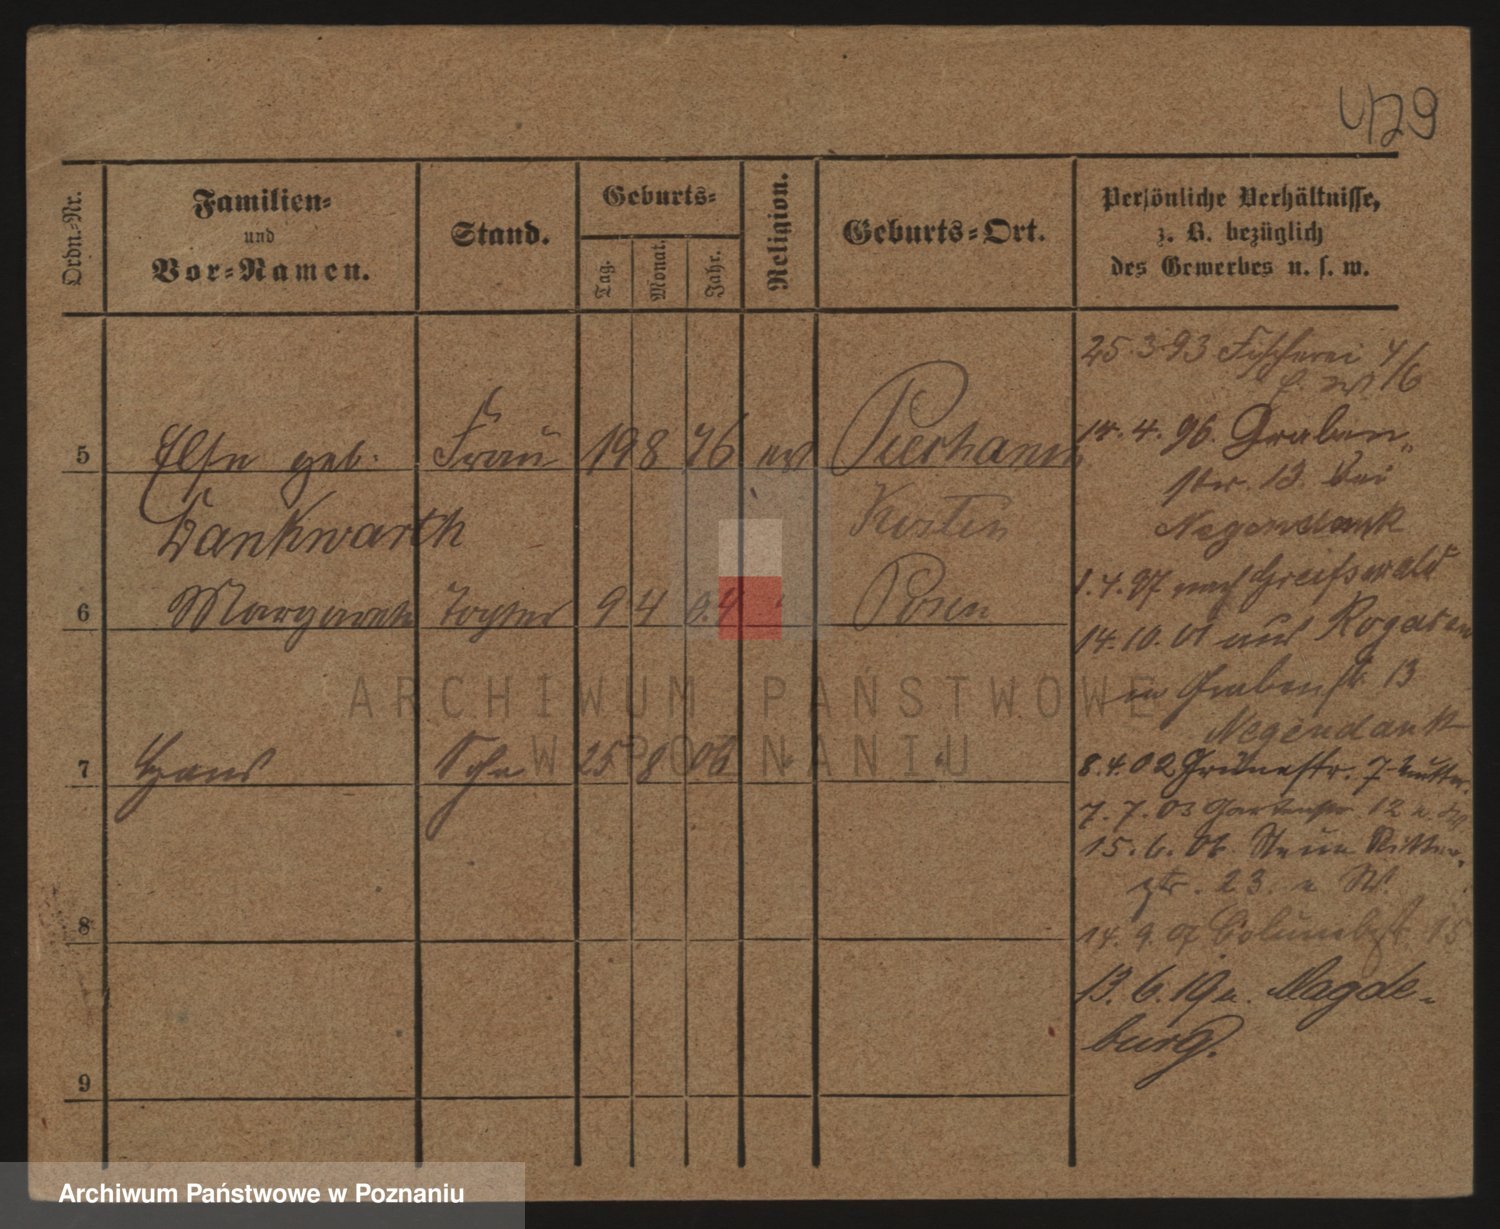 4129
Ordn.-Nr.
Familien-
und
Vor-Namen.
Stand.
Geburts-
Tag.
Monat.
Jahr.
Religion.
Geburts-Ort.
Persönliche Verhältnisse,
z. B. bezüglich
des Gewerbes u. s. w.
25.3.93 Fischerei 4/6
14.4.96. Graben-
str. 13. bei
Negendank
5 Else geb. Frau 19 8 76
Dankwarth
1.4.97 nach Greifswald
6 Margarete Tochter 9 4 04 Posen
14.10.01 aus
Grabenstr 13
Negendank
7 Hans Sohn 25 8 06
8.4.02 Grünestr. 7
7.7.03 Gartenstr 12
15.6.06. Ritter-
str. 23.
8
14.9. 15
13.6.19 n. Magde-
burg.
9
ARCHIWUM PAŃSTWOWE
W POZNANIU
Archiwum Państwowe w Poznaniu